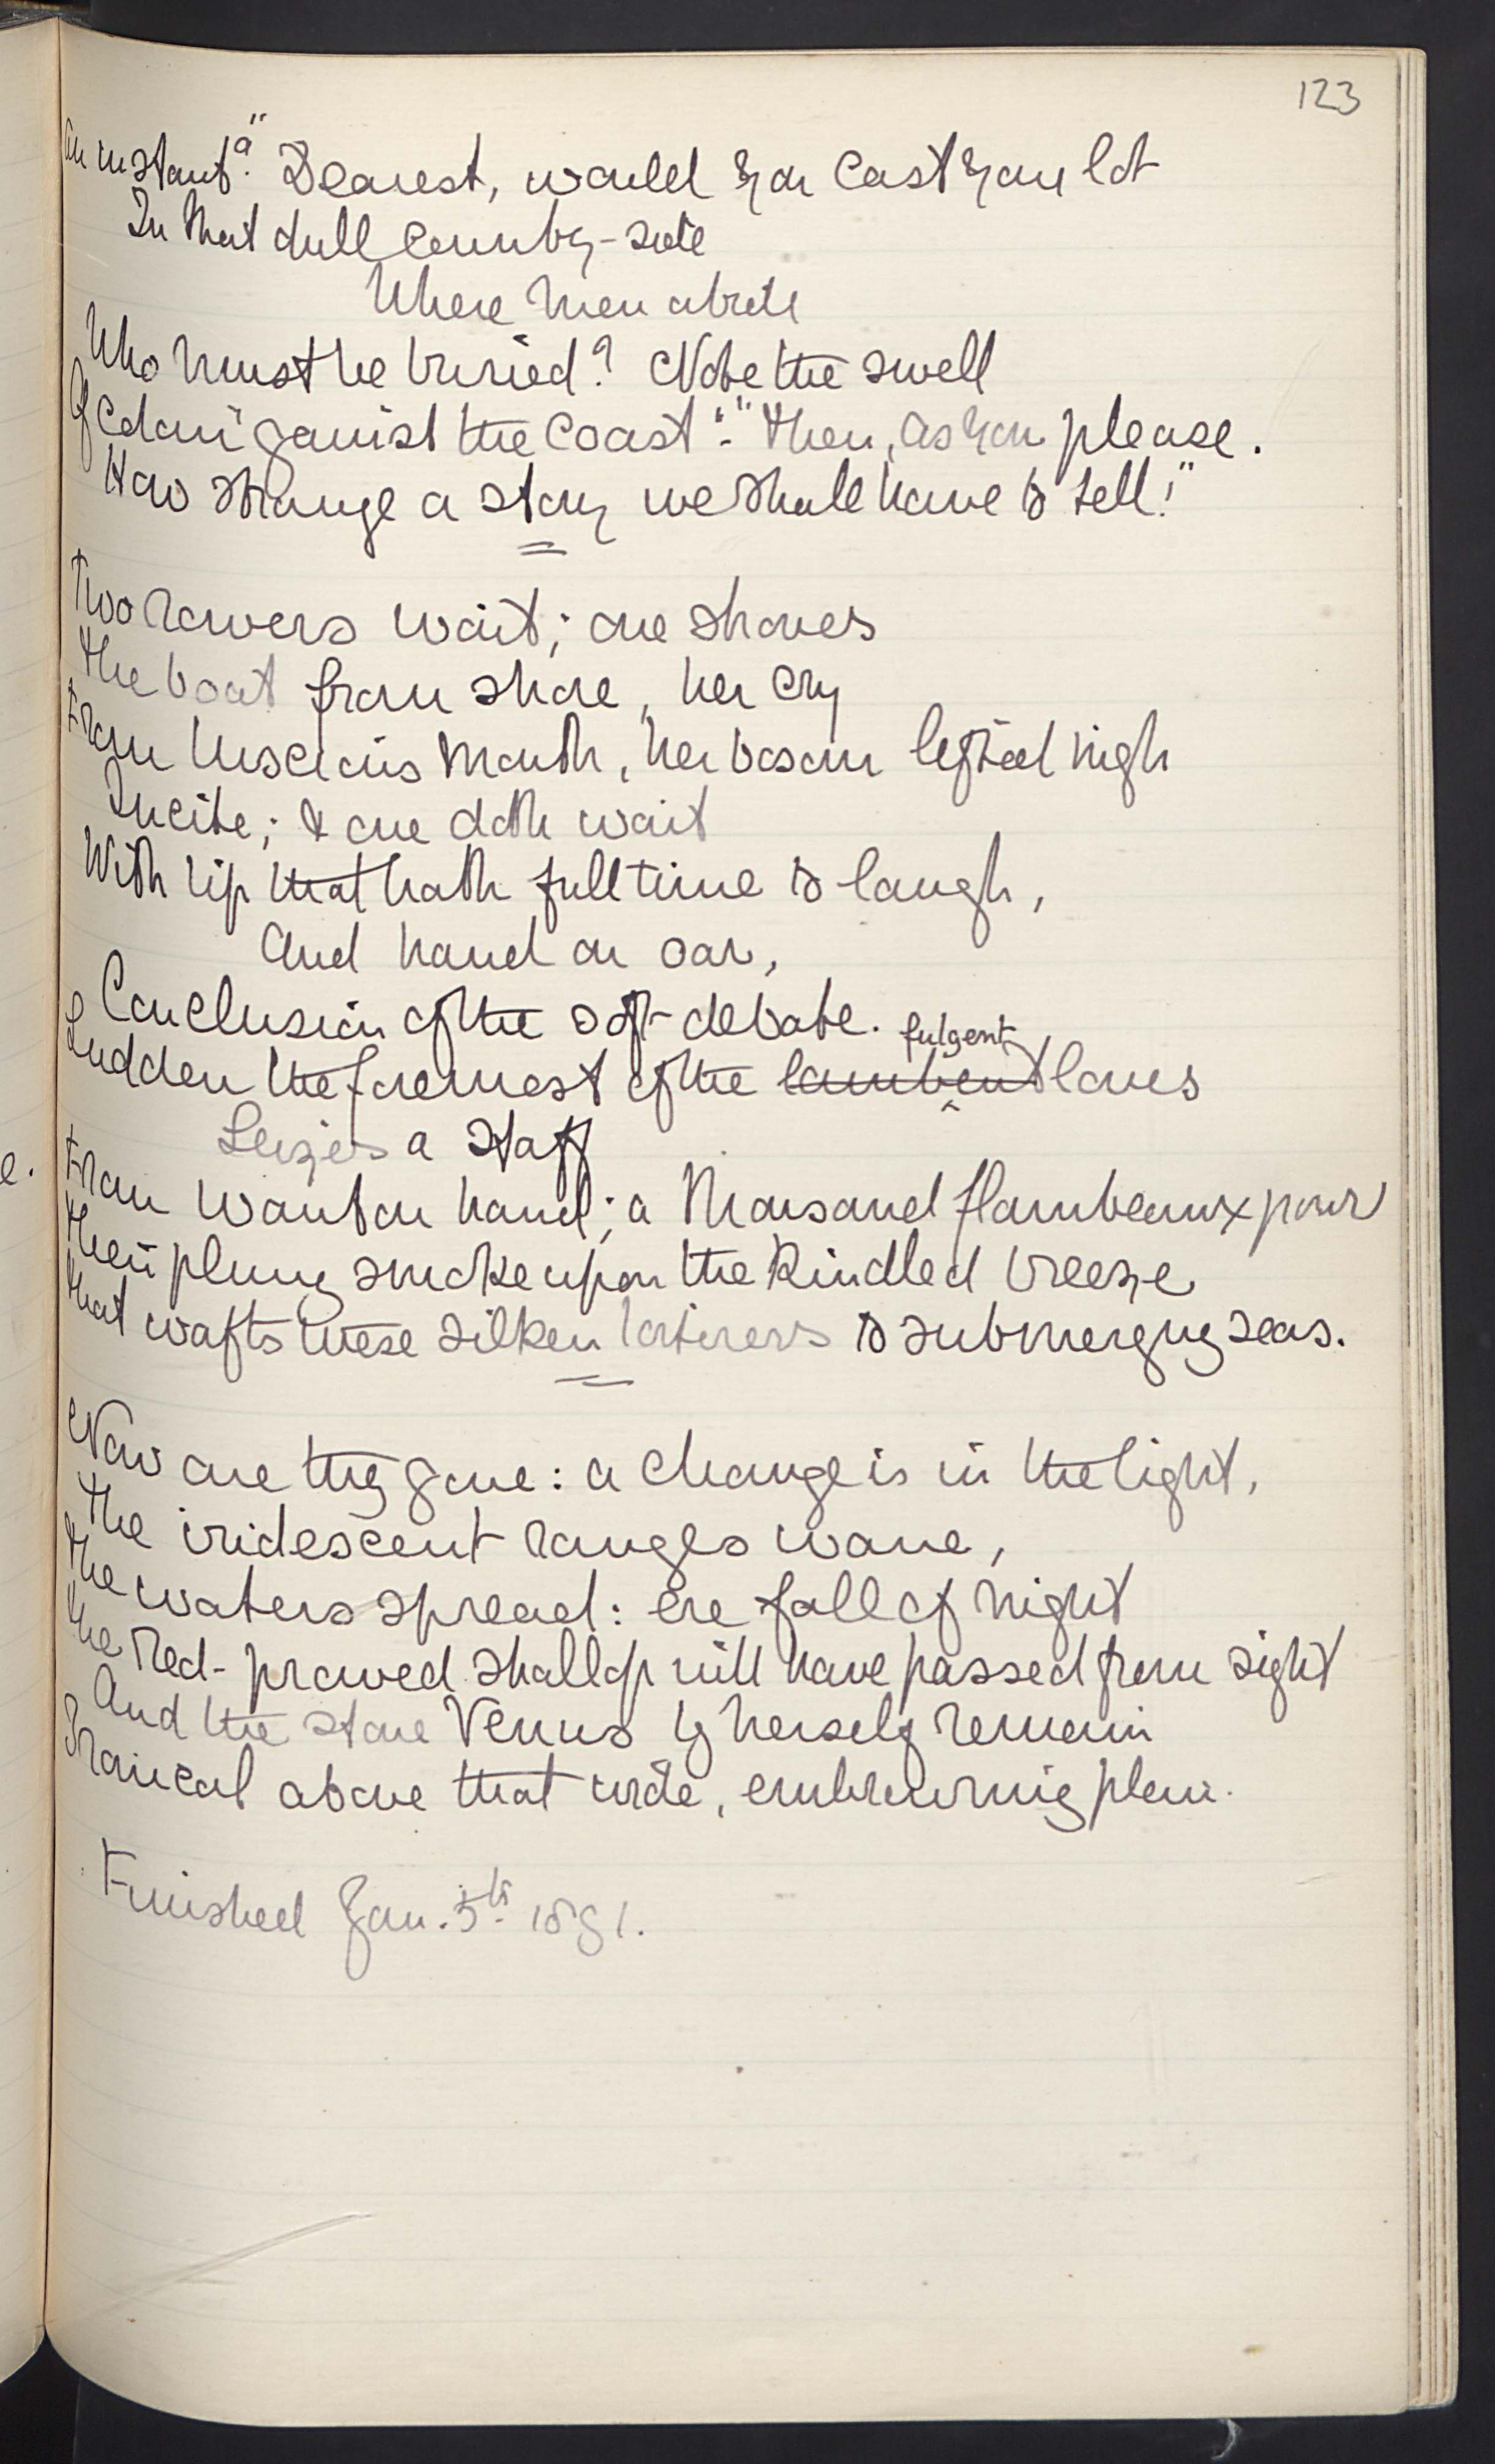 123
An instant." "Dearest, would you cast your lot
In that dull country-side
Where men abide
Who must be buried? Note the swell
Of colour 'gainst the coast"—"Then, as you please.
How strange a story we shall have to tell!"
Two rowers wait; one shoves
The boat from shore, her cry
From luscious mouth, her bosom lifted high
Incite; & one doth wait
With lip that hath full time to laugh,
And hand on oar,
Conclusion of the soft debate.
fulgent
Sudden the foremost of the lambent loves
Seizes a staff
From wanton hand; a thousand flambeaux pour
Their plumy smoke upon the kindled breeze
That wafts these silken loiterers to submerging seas.
Now are they gone: a change is in the light,
The iridescent ranges wane,
The waters spread: ere fall of night
The red-prowed shallop will have passed from sight
And the stone Venus by herself remain
Ironical above that wide, embrowning plain.
Finished Jan. 5th 1891.
e.